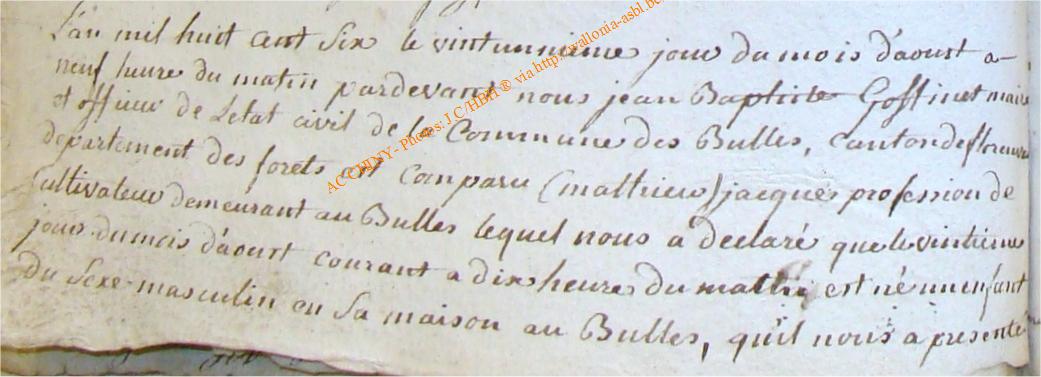 L'an mil huit cent Six le vintunnieme jour du mois d'aoust a
neuf heure du matin pardevant nous jean Baptiste Goffinet maire
et officier de Letat civil de la Commune des Bulles, canton de florenville
departement des forets est Comparu (mathieu) jacques profession de
Cultivateur demeurant au Bulles lequel nous a declaré que le vintieme
jour du mois d'aoust courant a dix heures du matin est né un enfant
du Sexe masculin en Sa maison au Bulles, qu'il nous a presenté
ACCHINY - Photos: J C/HBH ® via http://wallonia-asbl.be